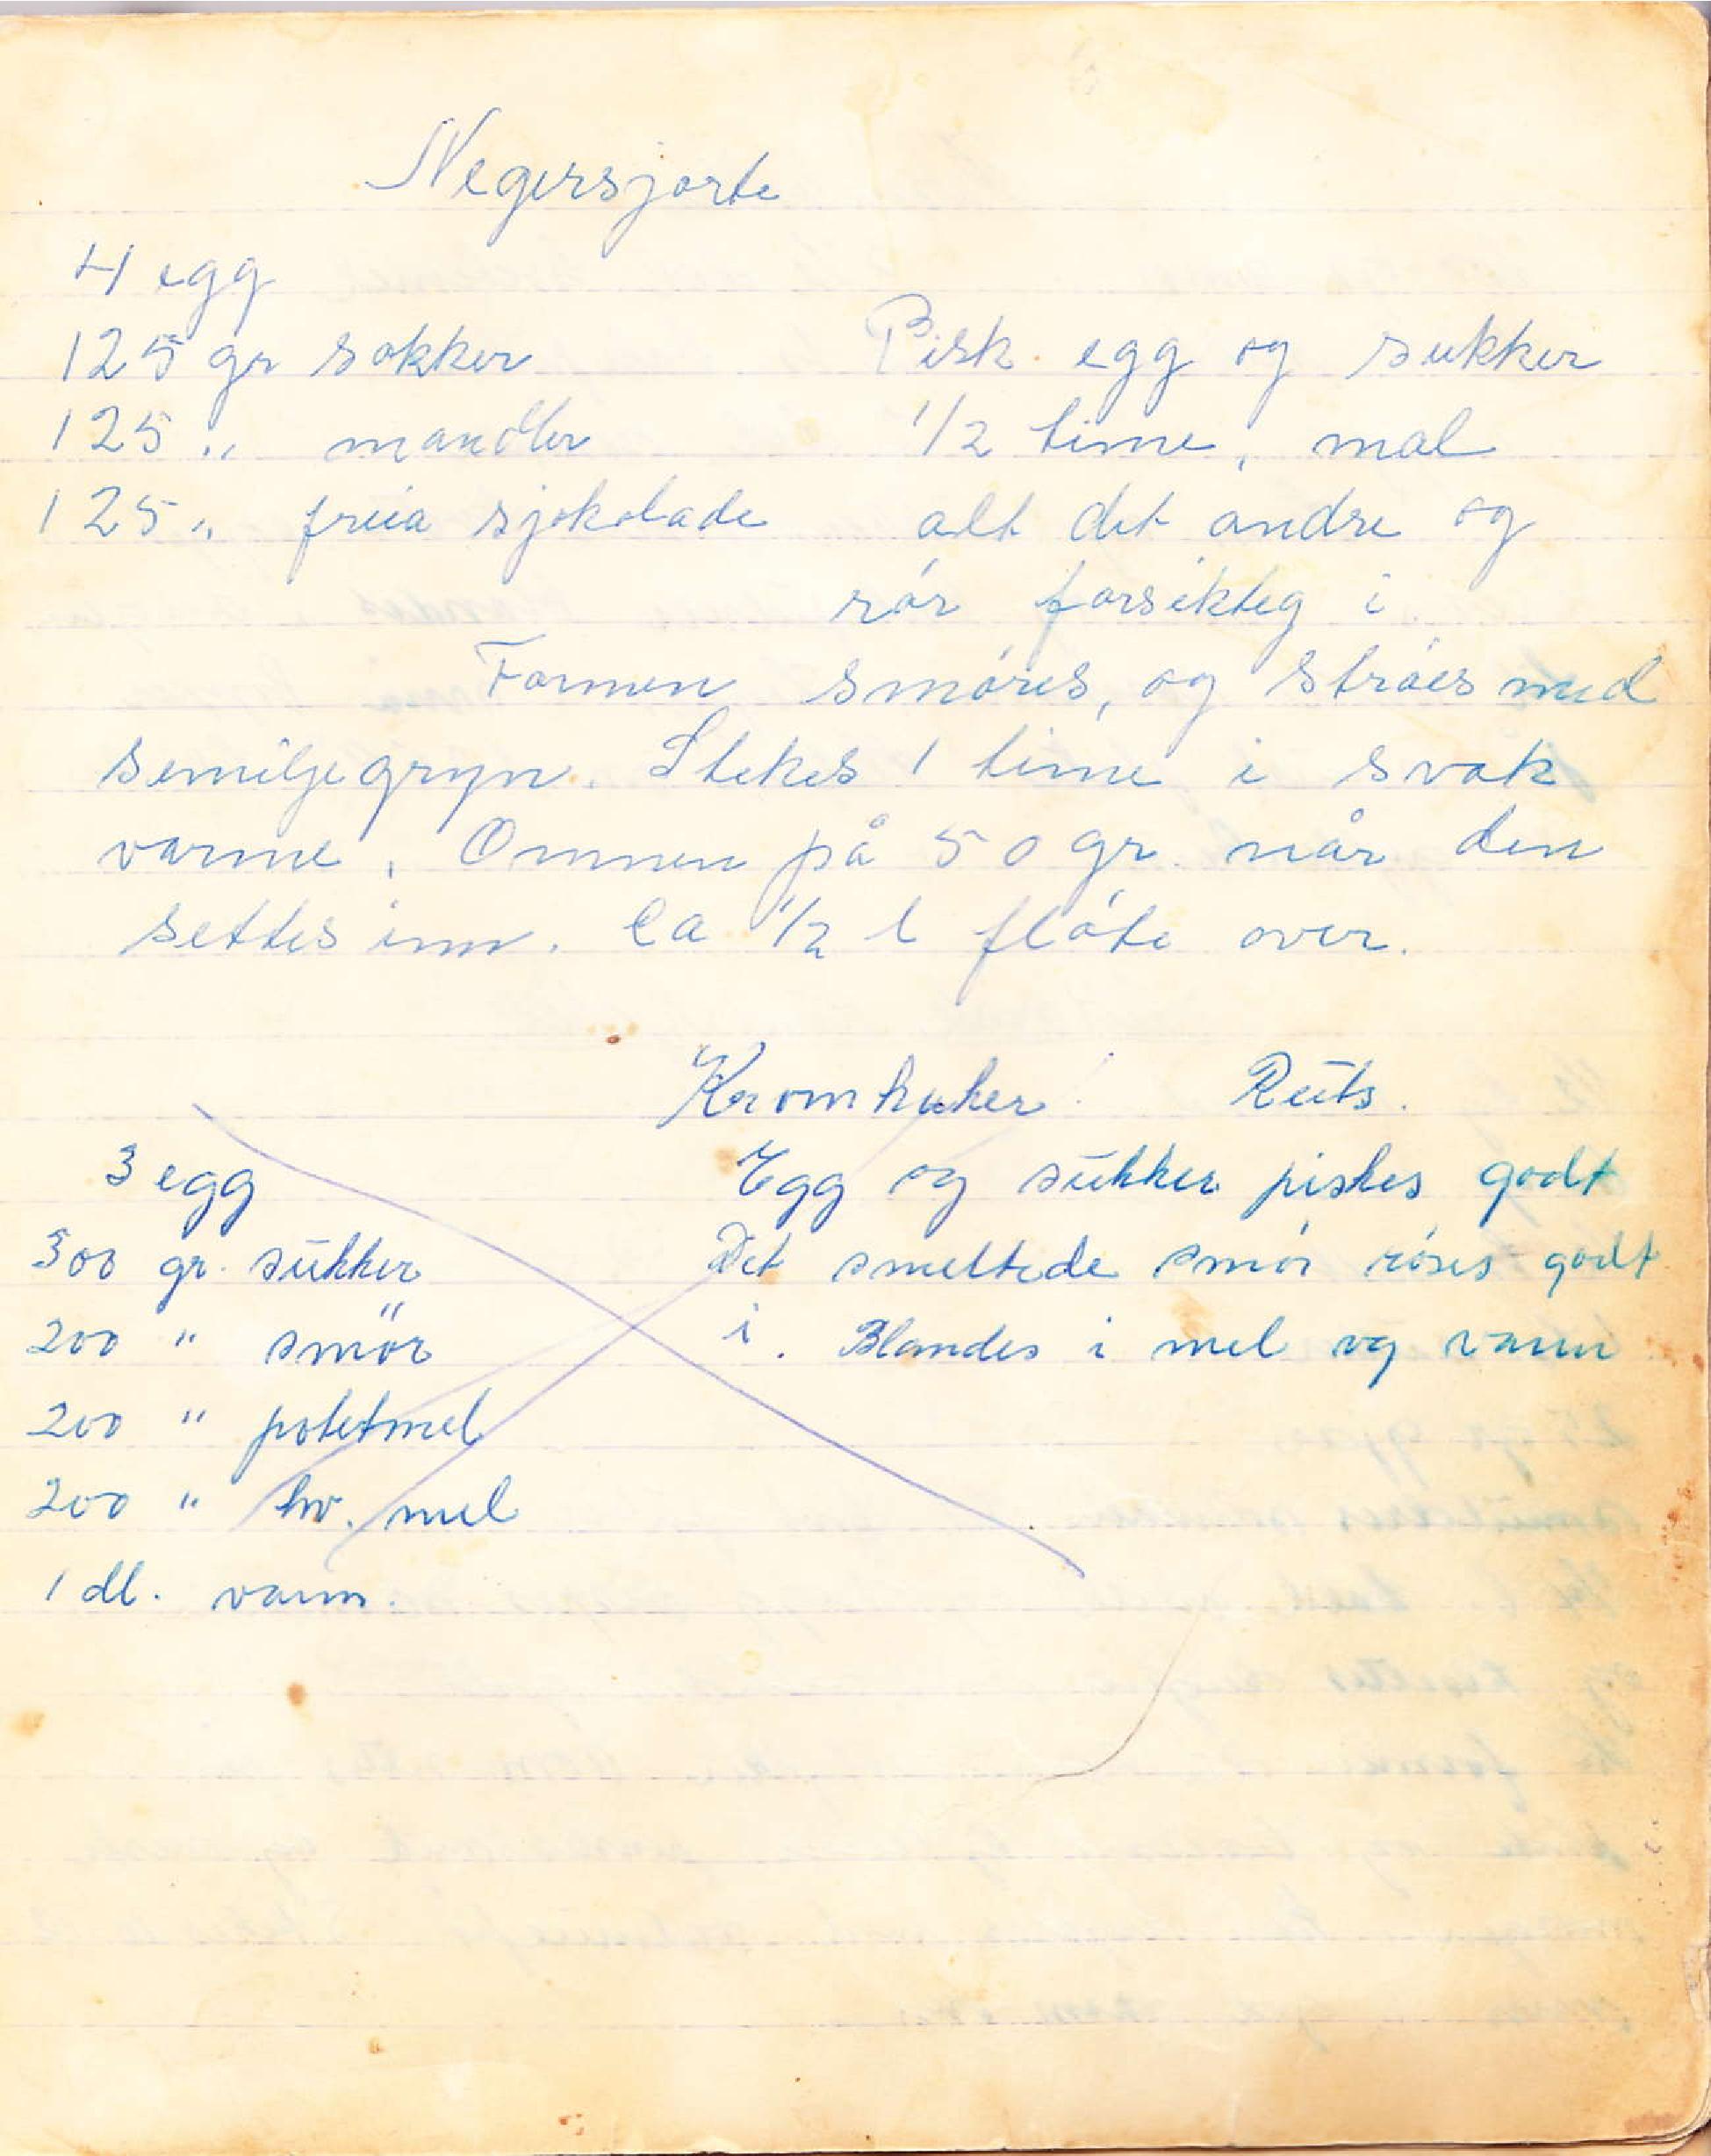 Negersjorte
4 egg
125 gr sokker
125 „ mandler
125 „ freia sjokolade
Pisk egg og sukker
1/2 time, mal
alt det andre og
rór forsikteg i
Formen smóres, og stróes med
semiljegryn. Stekes 1 time i svak
varme, Omnen på 50 gr. når den
settes inn. Ca 1/2 l flóte over.
Kromkaker Rūts.
3 egg
300 gr. sūkker
200 " smör
200 " potetmel
200 " hv. mel
1 dl. vann.
Egg og sūkker piskes godt
Det smeltede smór róres godt
i. Blandes i mel og vann